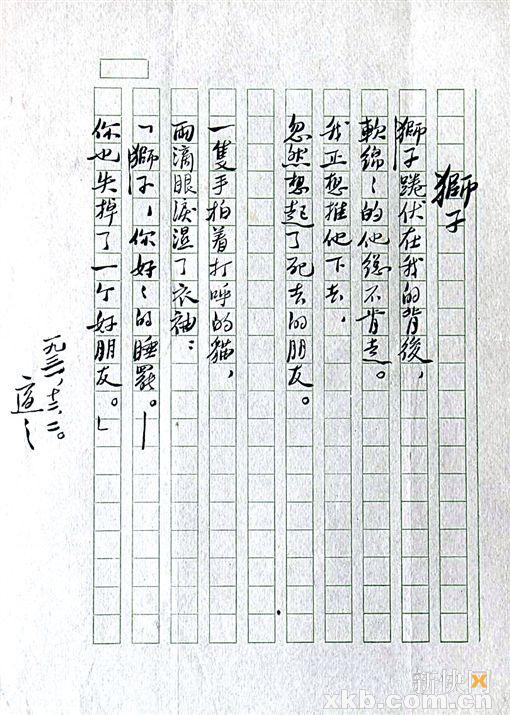 獅子
獅子踡伏在我的背後，
軟綿〻的他總不肯走。
我正想推他下去，
忽然想起了死去的朋友。
一隻手拍着打呼的貓，
兩滴眼淚濕了衣袖：
「獅子，你好〻的睡罷。——
你也失掉了一个好朋友。」
一九三一，十二，二。
適之
新快网
xkb.com.cn